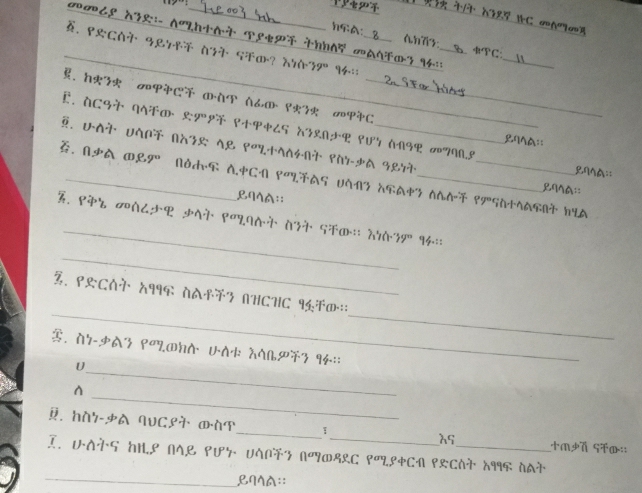 ቋንቋ ት/ት አንደኛ ዙር መለማመጃ
ጥያቄዎች
ስም: ክፍል: 8 ሴክሽን: ቁጥር: 11
መመሪያ አንድ:- ለሚከተሉት ጥያቄዎች ትክክለኛ መልሳቸውን ፃፉ።
፩. የድርሰት ዓይነቶች ስንት ናቸው? እነሱንም ፃፉ።
፪. ከቋንቋ መዋቅሮች ውስጥ ሰፊው የቋንቋ መዋቅር ይባላል።
፫. ስርዓት ባላቸው ድምፆች የተዋቀረና አንደበታዊ የሆነ ሰብዓዊ መግባቢያ ይባላል።
፬. ሁለት ሀሳቦች በአንድ ላይ የሚተላለፉበት የስነ-ቃል ዓይነት ይባላል።
፭. በቃል ወይም በፅሑፍ ሊቀርብ የሚችልና ሀሳብን አፍልቀን ለሌሎች የምናስተላልፍበት ክሂል
ይባላል።
፮. የቅኔ መሰረታዊ ቃላት የሚባሉት ስንት ናቸው። እነሱንም ፃፉ።
፯. የድርሰት አፃፃፍ ስልቶችን በዝርዝር ፃፏቸው።
፰. ስነ-ቃልን የሚወክሉ ሁለቱ እሳቤዎችን ፃፉ።
ሀ
ለ
፱. ከስነ-ቃል ባህርያት ውስጥ ፣ እና ተጠቃሽ ናቸው።
፲. ሁለትና ከዚያ በላይ የሆኑ ሀሳቦችን በማወዳደር የሚያቀርብ የድርሰት አፃፃፍ ስልት
ይባላል።